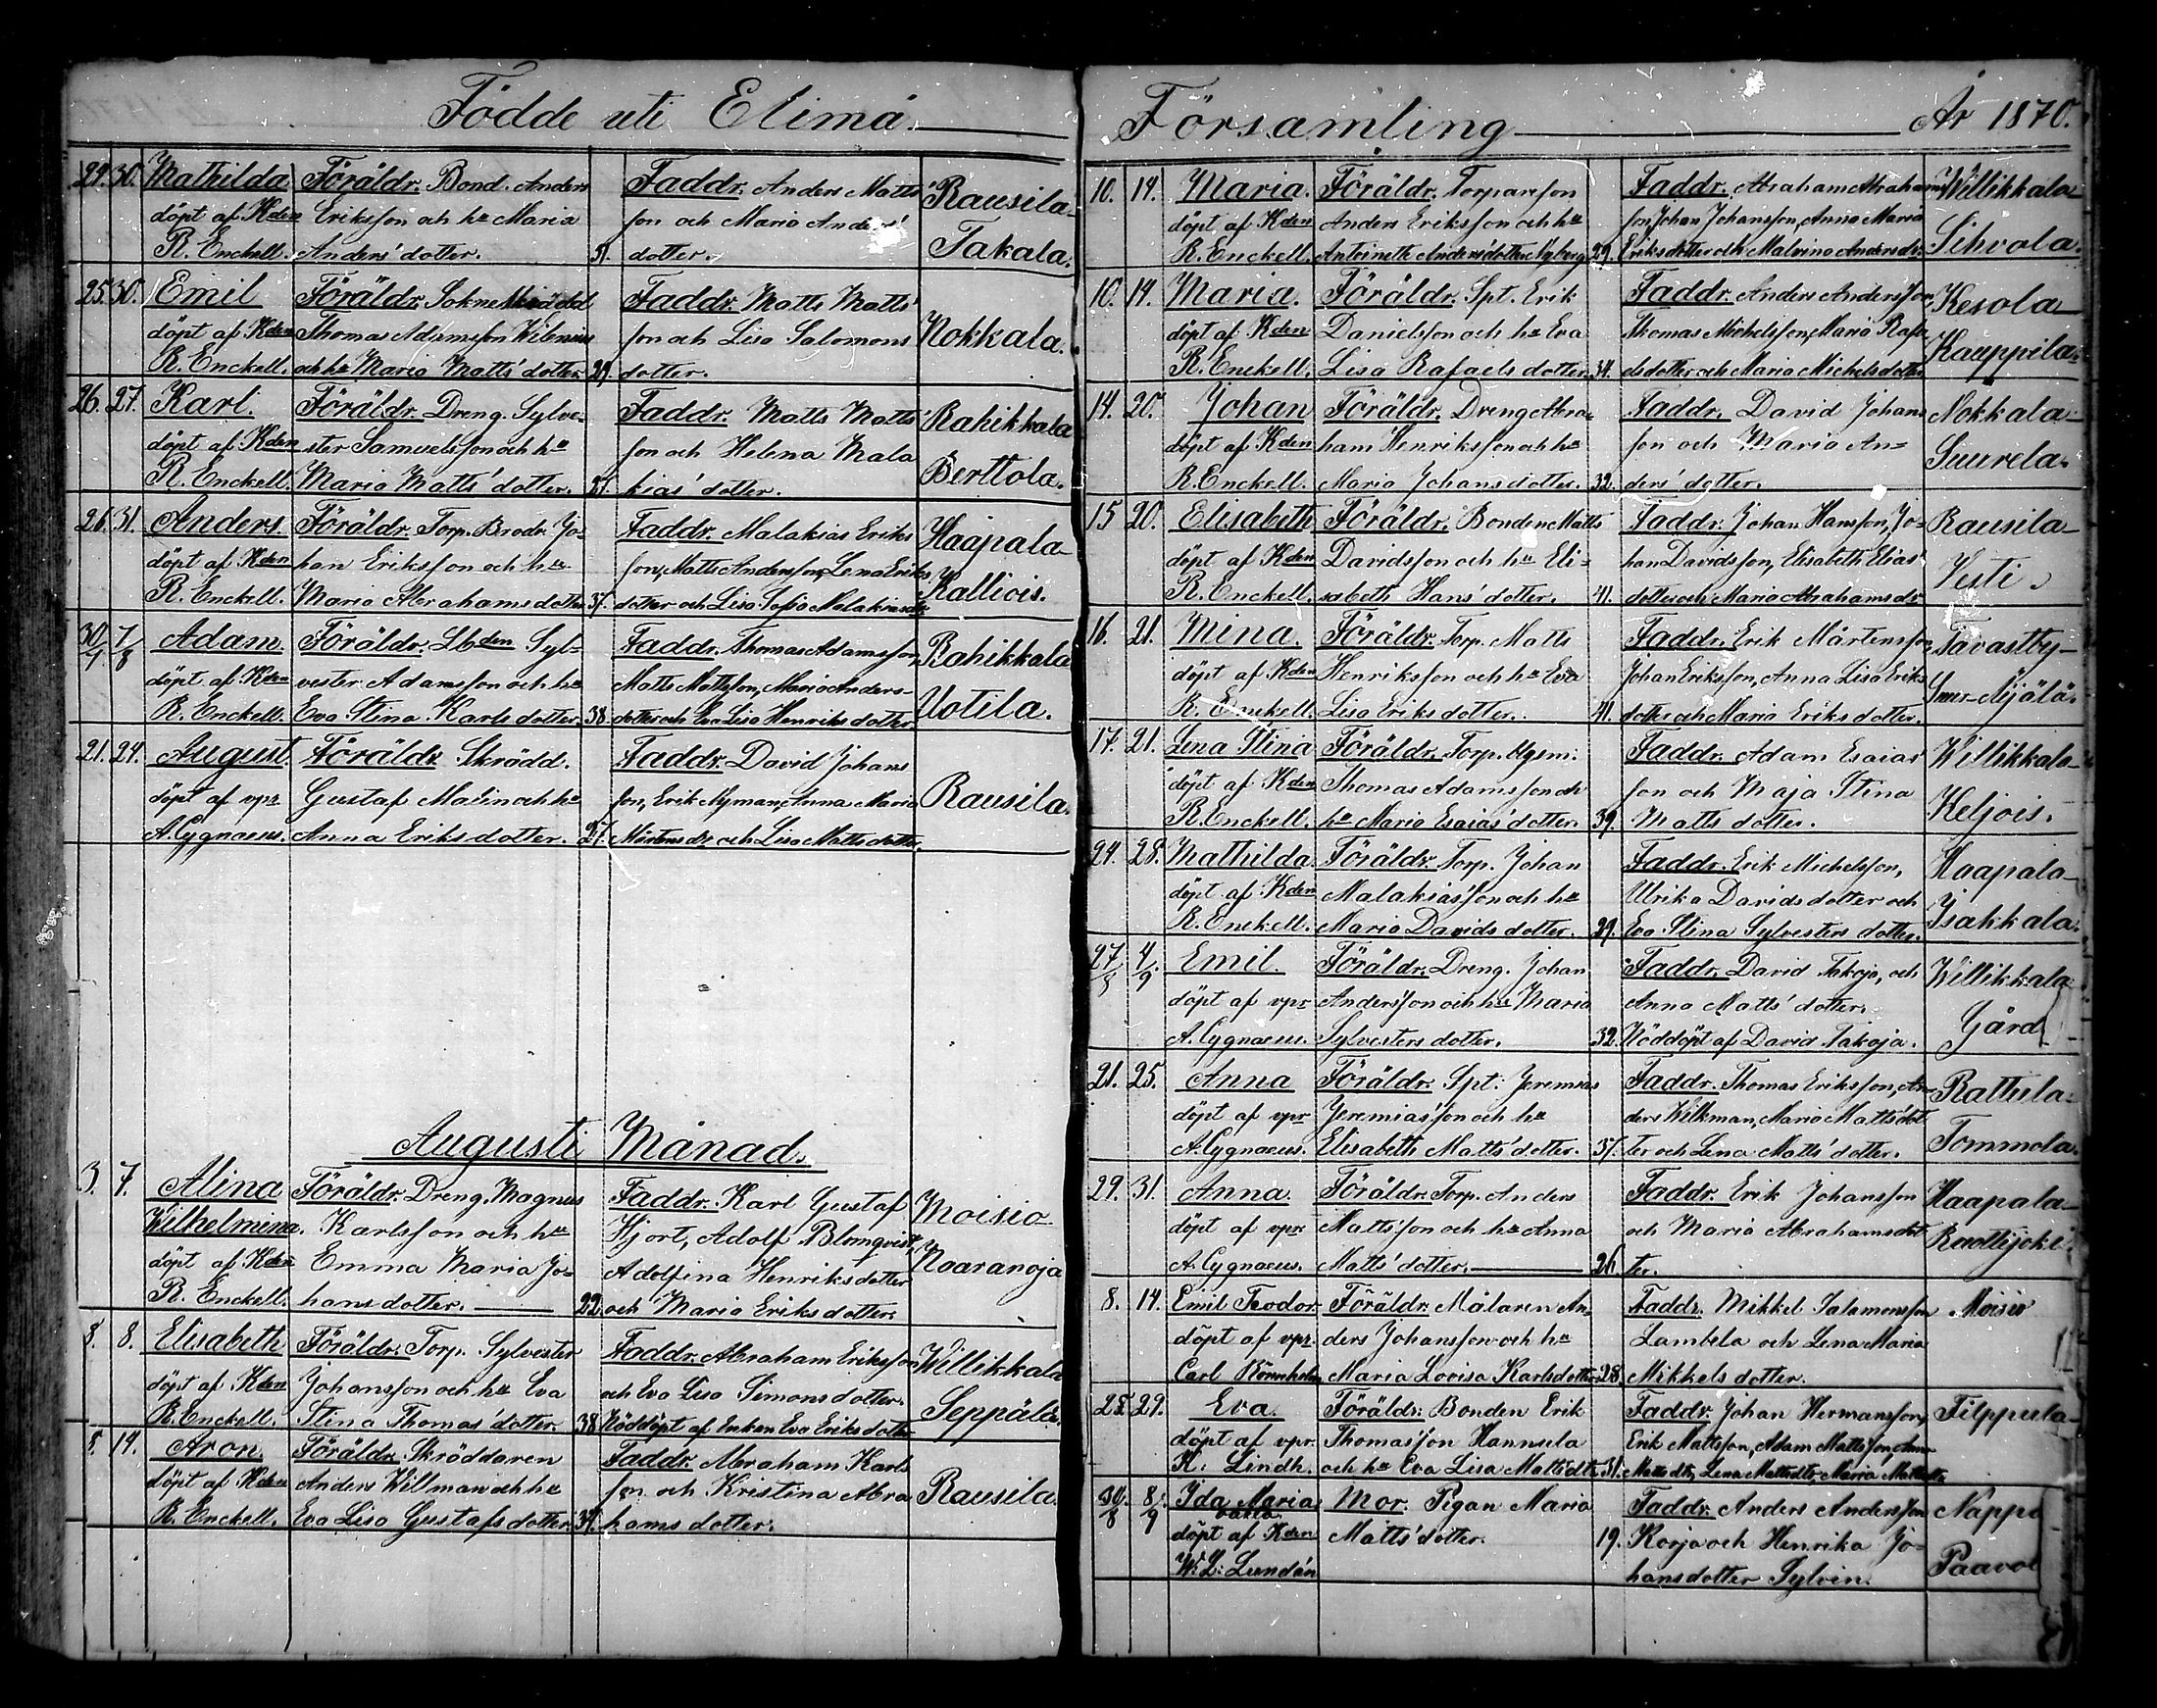 Födde uti Elimä.
29. 30. Mathilda Föräldr. Bond. Anders Faddr. Anders Matts Rausila
döpt af Kden Eriksson och hu Maria son och Maria Anders' Takala.
R. Enckell. Anders' dotter. 31. dotter.
25. 30. Emil Föräldr. Thomas Adamsson Wilenius Faddr. Matts Matts'
döpt af Kden son och Lisa Salomons Nokkala.
R. Enckell. och hu Maria Matts' dotter. 29. dotter.
26. 27. Karl. Föräldr. Dreng. Sylve- Faddr. Matts Matts' Rahikkala
döpt af Kden ster Samuelsson och hu son och Helena Mala
R. Enckell. Maria Matts' dotter. 25. kias' dotter. Berttola.
26. 31. Anders. Föräldr. Torp. Brodr. Jo- Faddr. Malakias Eriks Haapala
döpt af Kden han Eriksson och hu son, Matts Andersson, Lena Eriks Kalliois.
R. Enckell. Maria Abrahams dotter 37. dotter och Lisa Sofia Malakiasdr.
30/7 7/8 Adam. Föräldr. Lbden Syl- Faddr. Thomas Adamsson, Rahikkala
döpt af Kden vester Adamsson och hu Matts Mattsson, Maria Anders-
R. Enckell. Eva Stina Karls dotter. 38. dotter och Eva Lisa Henriks dotter. Uotila.
21. 24. August. Föräldr. Skrädd. Faddr. David Johans
döpt af vpr Gustaf Malin och hu son, Erik Nyman, Anna Maria Rausila.
A. Cygnaeus. Anna Eriks dotter. 27. Mårtens dr och Lisa Matts dotter.
Augusti Månad.
3. 7. Alina Föräldr. Dreng. Magnus Faddr. Karl Gustaf Moisio
Wilhelmina. Karlsson och hu Hjort, Adolf Blomqvist,
döpt af Kden Emma Maria Jo- Adolfina Henriks dotter Naaranoja
R. Enckell. hans dotter. 22. och Maria Eriks dotter.
8. 8. Elisabeth Föräldr. Torp. Sylvester Faddr. Abraham Eriksson Willikkala
döpt af Kden Johansson och hu Eva och Eva Lisa Simons dotter.
R. Enckell. Stina Thomas' dotter. 38. Nöddöpt af Enkan Eva Eriks dotter Seppälä.
8. 14. Aron. Föräldr. Skräddaren Faddr. Abraham Karls
döpt af Kden Anders Willman och hu son och Kristina Abra Rausila.
R. Enckell. Eva Lisa Gustafs dotter. 34. hams dotter.
Församling År 1870.
10. 14. Maria. Föräldr. Torparson Faddr. Abraham Abrahams Willikkala
döpt af Kden Anders Eriksson och hu son, Johan Johansson, Anna Maria
R. Enckell. Antoinette Anders'dotter Nyberg 29. Eriks dotter och Malvina Anders dr. Sihvola.
10. 14. Maria. Föräldr. Spt. Erik Faddr. Anders Andersson, Kesola
döpt af Kden Danielsson och hu Eva Thomas Michelsson, Maria Rafa
R. Enckell. Lisa Rafaels dotter. 34. elsdotter och Maria Michels dotter Kauppila.
14. 20. Johan Föräldr. Dreng Abra- Faddr. David Johans Nokkala
döpt af Kden ham Henriksson och hu son och Maria An-
R. Enckell. Maria Johans dotter. 32. ders' dotter. Suurela.
15 20. Elisabeth Föräldr. Bonden Matts Faddr. Johan Hansson, Jo- Rausila
döpt af Kden Davidsson och hu Eli- han Davidsson, Elisabeth Elias'
R. Enckell. sabeth Hans' dotter. 41. dotter och Maria Abrahams dr Vesti
16. 21. Mina. Föräldr. Torp. Matts Faddr. Erik Mårtensson Tavastby
döpt af Kden Henriksson och hu Eva Johan Eriksson, Anna Lisa Eriks
R. Enckell. Lisa Eriks dotter. 41. dotter och Maria Eriks dotter.
17. 21. Lena Stina Föräldr. Torp. Hgsm. Faddr. Adam Esaias' Willikkala
döpt af Kden Thomas Adamsson och son och Maja Stina
R. Enckell. hu Maria Esaias' dotter. 39. Matts dotter. Keljois.
24. 28. Mathilda. Föräldr. Torp. Johan Faddr. Erik Michelsson, Haapala
döpt af Kden Malakiasson och hu Ulrika Davids dotter och
R. Enckell. Maria Davids dotter. 29. Eva Stina Sylvesters dotter. Isakkala.
27/8 4/9. Emil. Föräldr. Dreng. Johan Faddr. David Takoja, och Willikkala
döpt af vpr Andersson och hu Maria Anna Matts' dotter.
A. Cygnaeus. Sylvesters dotter. 32. Nöddöpt af David Takoja. Gård
21. 25. Anna Föräldr. Spt. Jeremias Faddr. Thomas Eriksson, An- Rattula
döpt af vpr Jeremias'son och hu ders Wilkman, Maria Matts'dot
A. Cygnaeus. Elisabeth Matts' dotter. 37. ter och Lena Matts' dotter. Tommola.
29. 31. Anna. Föräldr. Torp. Anders Faddr. Erik Johansson Haapala
döpt af vpr Matts'son och hu Anna och Maria Abrahamsdot Raottijoki.
A. Cygnaeus. Matts' dotter. 26. ter.
8. 14. Emil Teodor. Föräldr. Målaren An- Faddr. Mikkel Salamonsson Moisio
döpt af vpr. ders Johansson och hu Lambela och Lena Maria
Carl Rönnholm Maria Lovisa Karlsdotter 28. Mikkels dotter.
25. 29. Eva. Föräldr. Bonden Erik Faddr. Johan Hermansson, Filppula
döpt af vpr. Thomasson Hannula Erik Mattsson, Adam Mattsson, Anna
K. Lindh. och hu Eva Lisa Mattsdtr 31. Mattsdtr, Lena Mattsdtr, Maria Mattsdtr
30/8 8/9 Ida Maria Mor. Pigan Maria Faddr. Anders Andersson Nappa
oäkta
döpt af Kden Matts' dotter. 19. Korja och Henrika Jo-
W. L. Lundán hans dotter Sylvin. Paavol